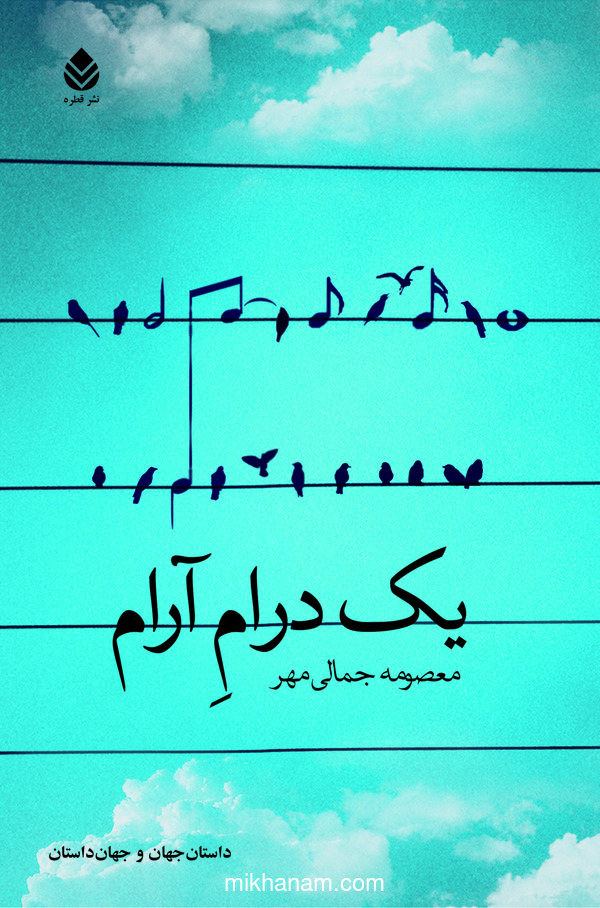 نشر قطره
یک درامِ آرام
معصومه جمالی‌مهر
داستان‌جهان و جهان‌داستان
mikhanam.com